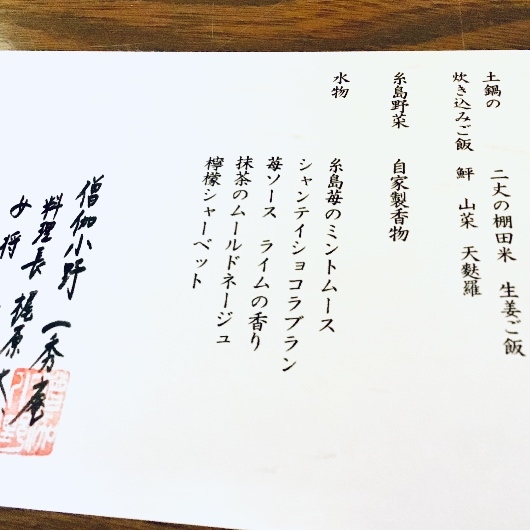 土鍋の
炊き込みご飯
二丈の棚田米 生姜ご飯
鮃 山菜 天麩羅
糸島野菜 自家製香物
水物
糸島苺のミントムース
シャンテイショコラブラン
苺ソース ライムの香り
抹茶のムールドネージュ
檸檬シャーベット
僧伽小野 一秀庵
料理長 梶原
女将